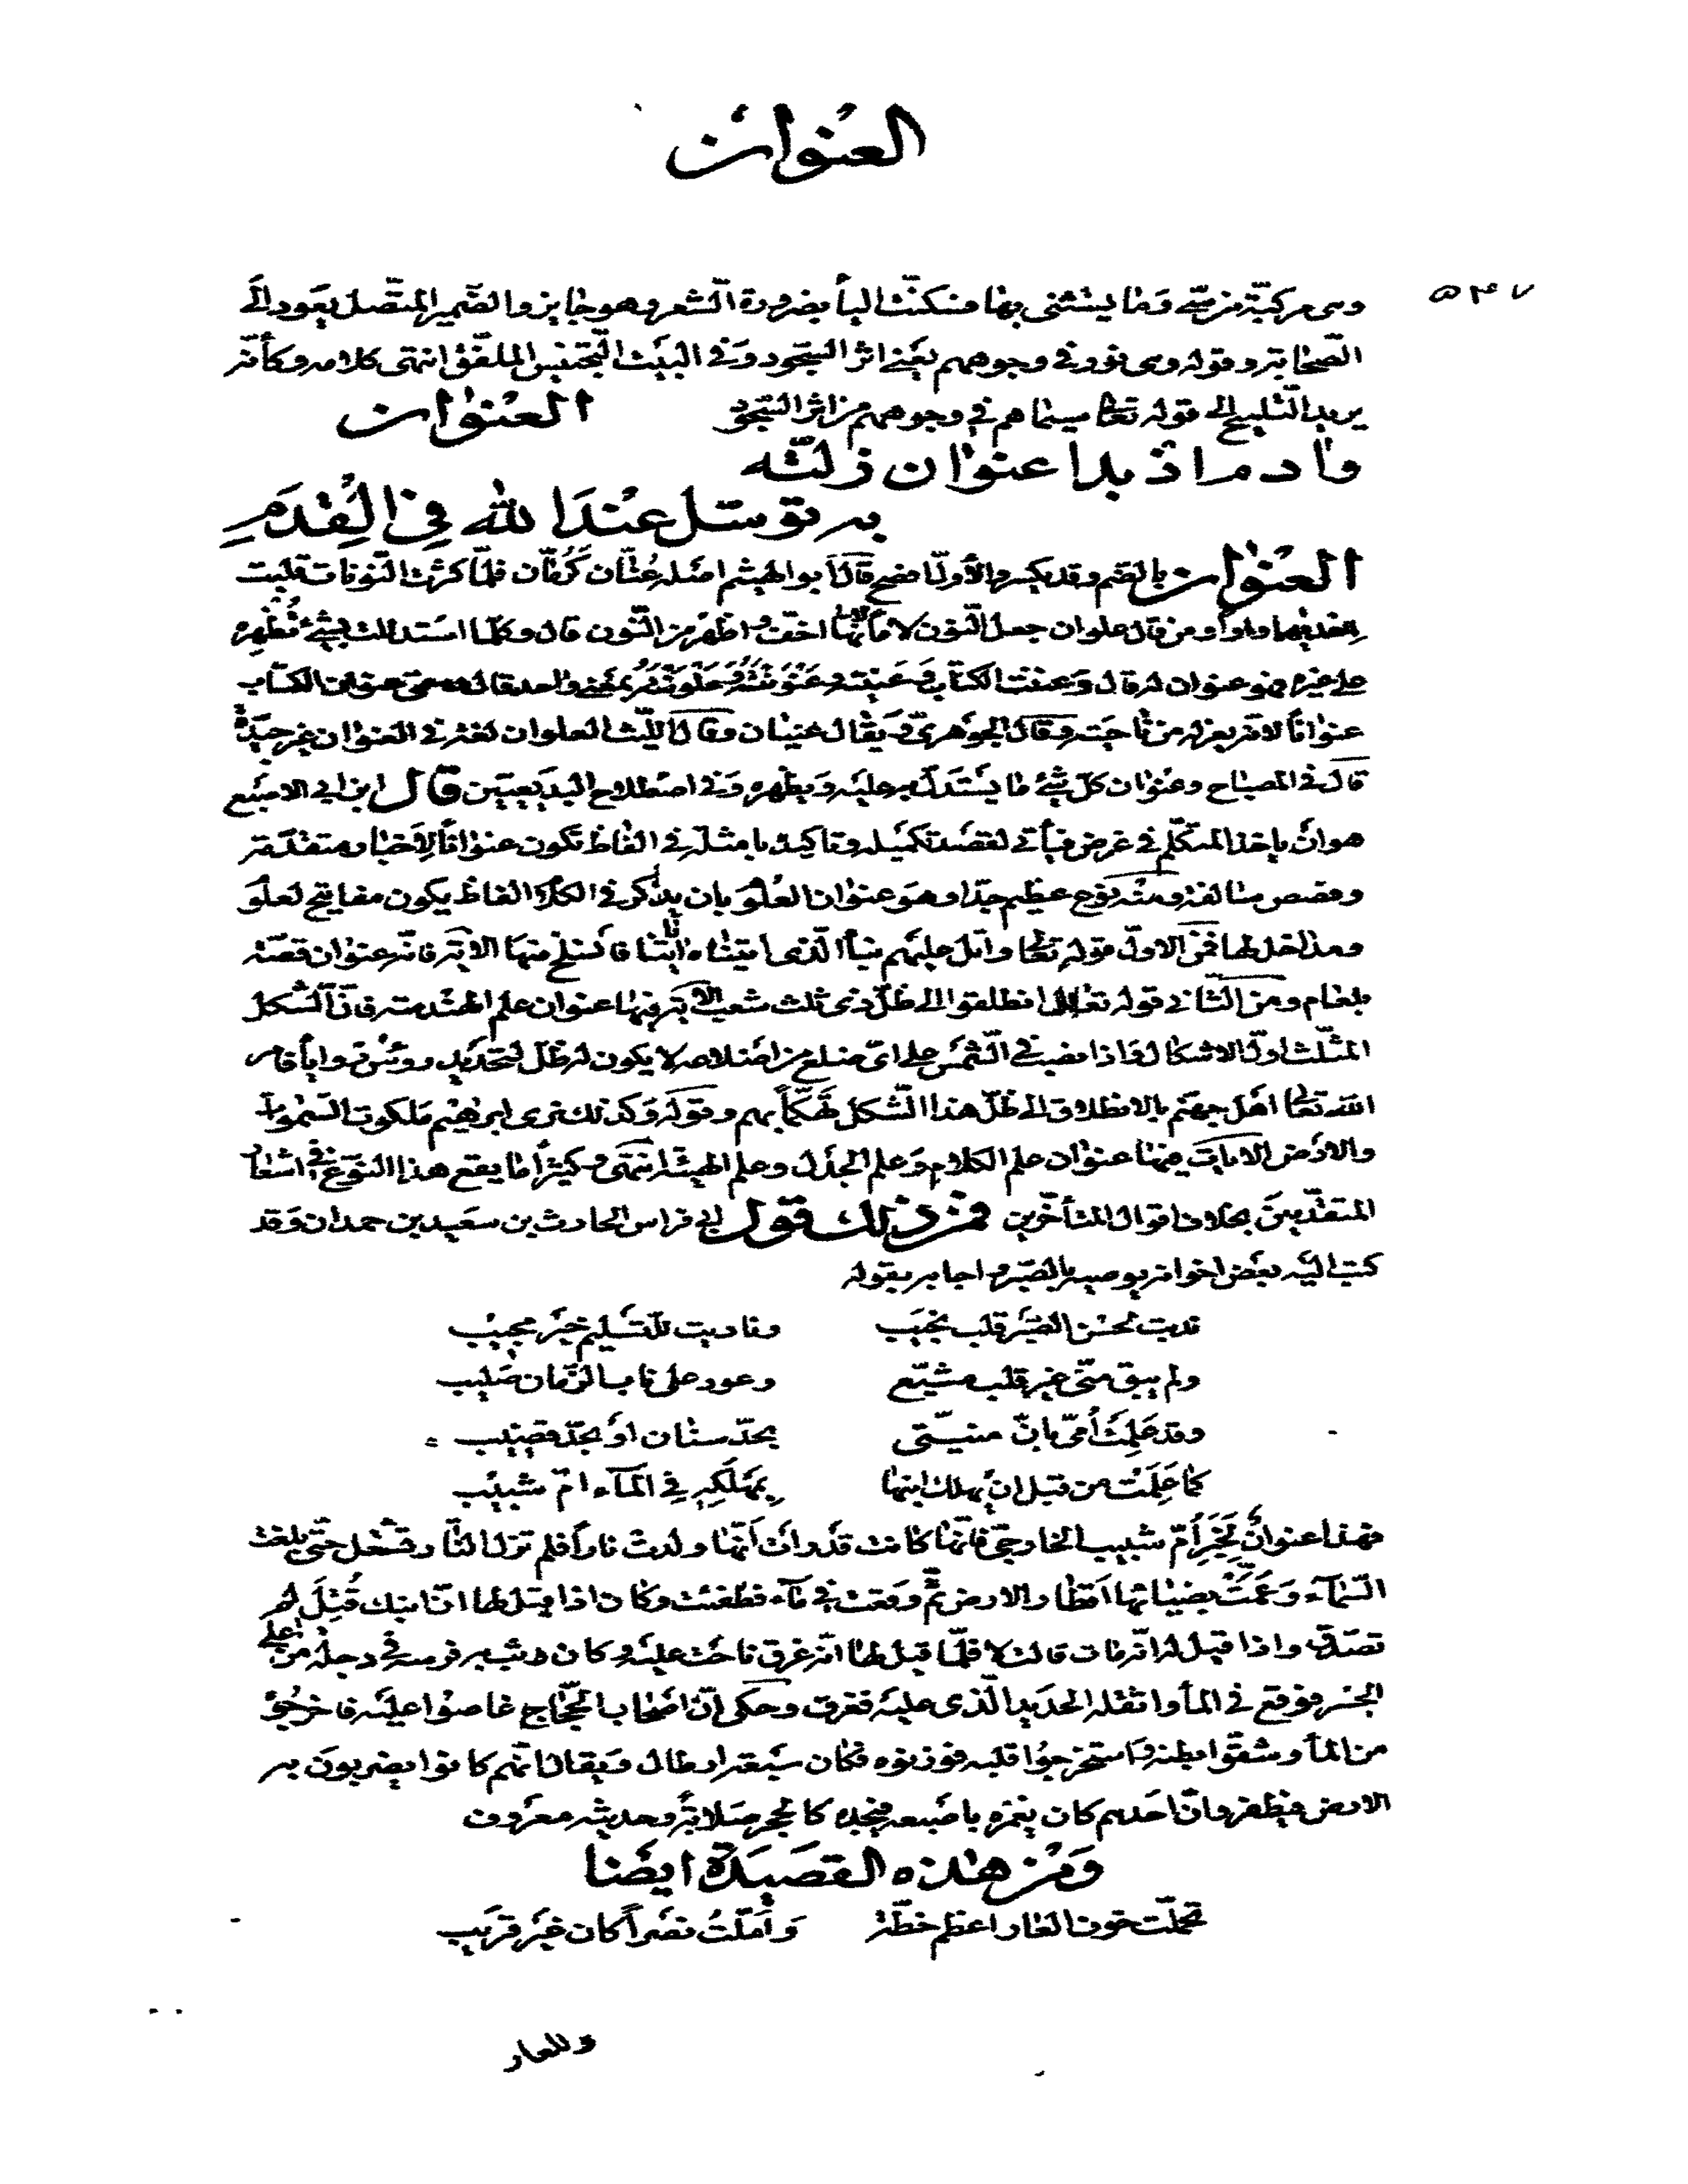 العنوان
٥٤٧
وهى مركبّة من سى وَما يستثنى بها فسكنّت اليأ بضرورة الشّعر وهو جايز والضّمير المتّصل يعَود الَى
الصّحابة وقوله وهى نور فى وجوههم يعَنى اثر السّجود وَفى البيَت التّجنيس الملفّق انتهى كلامه وكأنّه
يريد التّلميح الى قوله تعالى سيماهم فى وجوههم من اثر السّجود العنوان
وادم اذ بدا عنوان زلّته
به توسّل عنْدَ الله فِى الْقِدَمِ
العنْوان بالضّم وقد يكسر والأوّل افصح قال ابو الهيثم اصله عُنّان كَرُمّان فلمّا كثرت النّونات قلبت
احديها واوا ومن قال علوان جعل النّون لاما لانّها اخفّ واظهَر من النّون قال وكلّما استدللت بشئ تُظْهِره
على غيره فهو عنوان له قال وَعننت الكتاب وَعَنّيته وعَنْوَنْتُهُ وَعَلْوَنْتُهُ بمَعنى واحد قال وسمّى عنوان الكتاب
عنوانًا لانّه يعنّ له من ناحيته وقال الجوَهرىّ وَيقال عنيان وقال اللّيث العلوان لغة فى العنوان غير جيّدة
قال فى المصباح وعنْوان كلّ شئ ما يسْتَدلّ به عليَه وَيظهره وَفى اصَطلاح البدَيعيّين قال ابن ابى الاصبَع
هو انْ ياخذ المتكلّم فى غرض فيأتى لقصَد تكميَله وتاكيده بامثلة فى الفاظ تكون عنوانًا لاِخبار متقدّمة
وقصص سالفة ومنْه نوع عظيم جدّا وهوَ عنوان العُلوَم بان يذكر فى الكلام الفاظ يكون مفاتيح لعلوَم
ومداخل لها فمن الاوّل قوله تعالى واتل عليَهم نبأ الّذى اتيناه اياتنا فانسَلخ منها الاية فانّه عنوان قصّة
بلعام ومن الثّانى قوله تعالى انطلقوا الى ظلّ ذى ثلث شعب الاية فيها عنوان علم الهنْدسة فانّ الشّكل
المثلّث اوّل الاشكال فاذا نصب فى الشّمس على اىّ ضلع من اضلاعه لا يكون له ظلّ لتحدَيد روئس زواياه فامر
الله تعالى اهَل جهنّم بالانطلاق الى ظلّ هذا الشّكل تهكّمًا بهم وقوله وَكذلك نرى ابرهيم مَلكوت السّموات
والارض الايات فيها عنوان علم الكلام وَعلم الجدَل وعلم الهيئة انتهى وكثيرًا ما يقع هذا النّوع فى اشعار
المتقدّمين بخلاف اقوال المتأخّرين فمن ذلك قول ابى فراس الحارث بن سعَيد بن حمدان وَقد
كتب اليَه بعَض اخوانه يوصيه بالصّبر فاجابه بقوله
ندبت لحسْن الصّبَر قلب نجيَب وناديت للتّسَليم خيَر مجيْب
ولم يبق منّى غير قلب مشيّع وعود على ناب الزّمان صَليب
وقد عَلِمَتْ أُمّى بانّ منيّتى بحدّ سنان اوَ بحدّ قضيَب
كما عَلِمَتْ من قبل انْ يهلك ابنها بِمَهْلَكِهِ فى المآء امّ شبيَب
فهذا عنوانٌ لِخَبَرِ أُمّ شبيب الخارجىّ فانّها كانت قد رات انّها ولدت نارًا فلم تزل النّار تشتعل حتّى بلغت
السّمآء وَعَمَّتْ بضيائها اقطار الارض ثمّ وقعت فى مآء فطفئت وكان اذا قيل لها انّ ابنك قُتِلَ لم
تصدّق واذا قيل لها انّه مات قالت لا فلمّا قيل لها انّه غرق ناحت عليَه وكان وثب به فرسه فى دجلة من اعلى
الجسْر فوقع فى المأ واثقله الحدَيد الّذى عليَه فغرق وحكى انّ اصَحاب الحجّاج غاصوا عليَه فاخرجوُه
من المأ وشقّوا بطنه واستخرجوُا قلبه فوزنوه فكان سَبعة ارطال وَيقال انّهم كانوا يضربون به
الارض فيطفر وانّ احدهم كان يغمزه باصبَعه فيجده كالحجر صَلابةً وحديثه معرَوف
وَمن هذه القصَيدة ايضًا
تحمّلت خوف العار اعظم خطّة وَأمّلتُ نصَرًا كان غيَر قريَب
وللعار